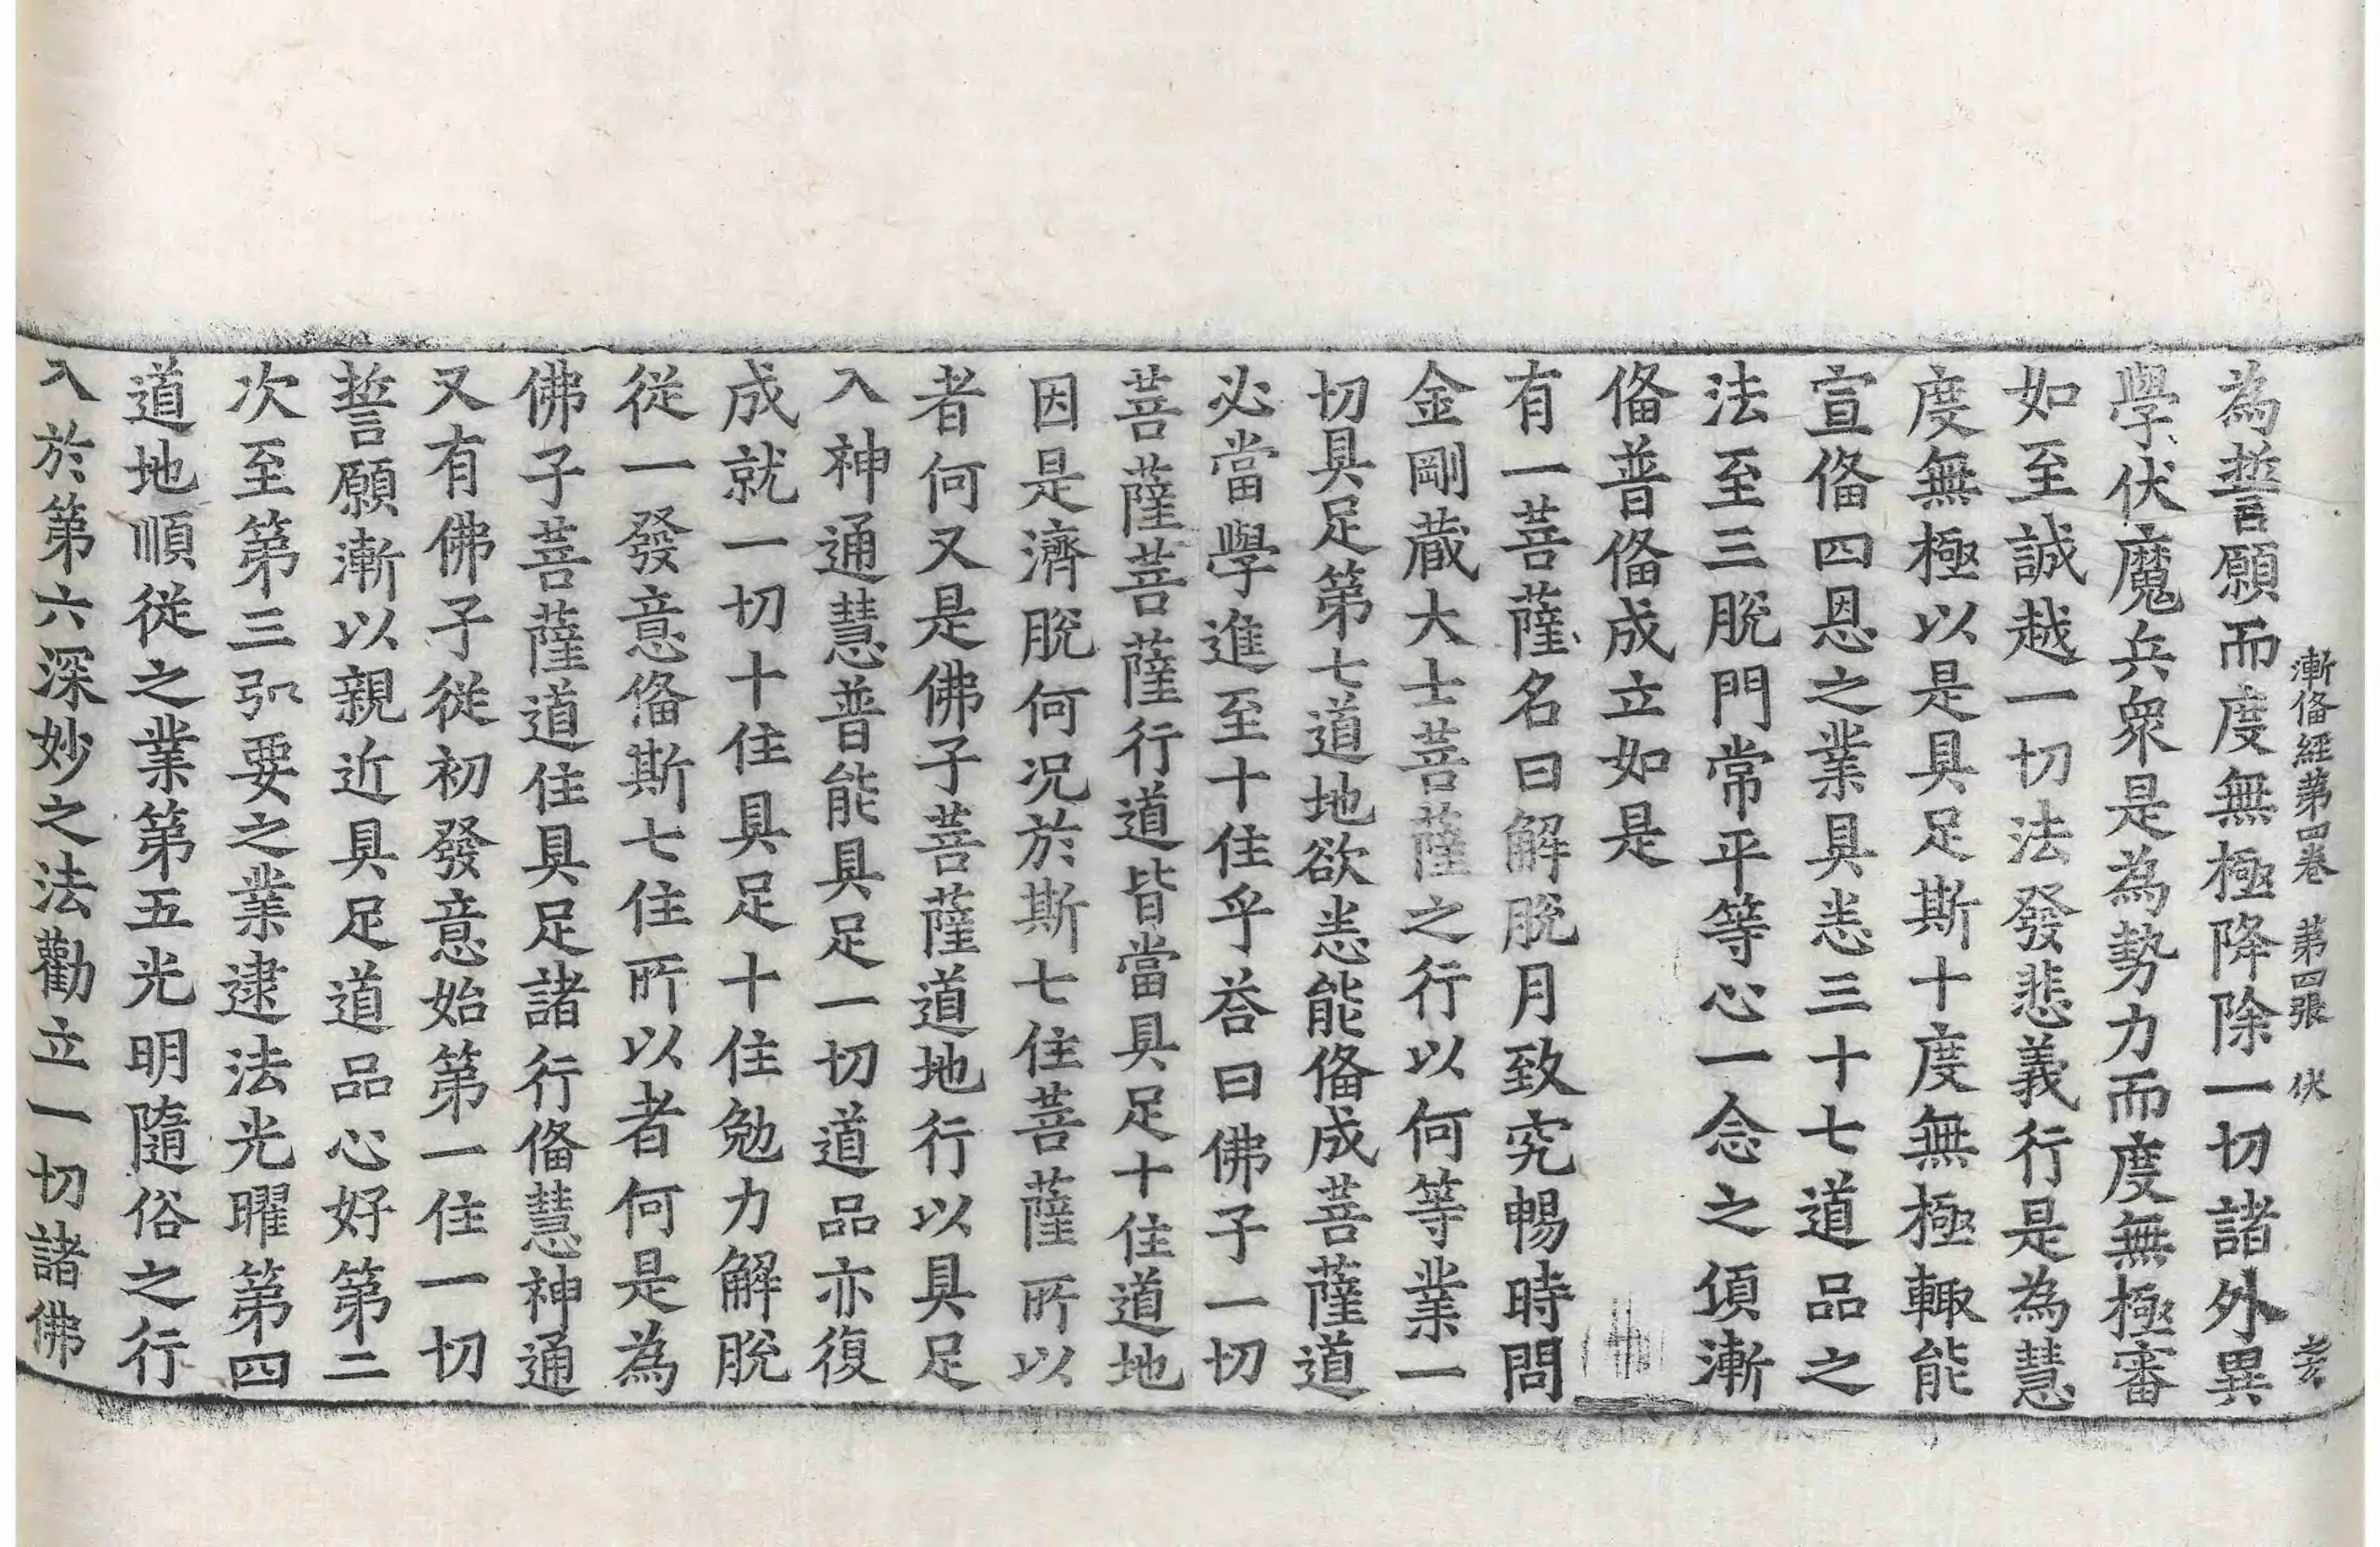 漸俻經第四卷 第四張 伏
為誓願而度無極降除一切諸外異
學伏魔兵衆是為勢力而度無極審
如至誠越一切法發悲義行是為慧
度無極以是具足斯十度無極輙能
宣俻四恩之業具恙三十七道品之
法至三脫門常平等心一念之頃漸
俻普俻成立如是
有一菩薩名曰解脫月致究暢時問
金剛蔵大士菩薩之行以何等業一
切具足第七道地欲恙能俻成菩薩道
必當學進至十住乎荅曰佛子一切
菩薩菩薩行道皆當具足十住道地
因是濟脫何况於斯七住菩薩所以
者何又是佛子菩薩道地行以具足
入神通慧普能具足一切道品亦復
成就一切十住具足十住勉力解脫
從一發意俻斯七住所以者何是為
佛子菩薩道住具足諸行俻慧神通
又有佛子從初發意始第一住一切
誓願漸以親近具足道品心好第二
次至第三弘要之業逮法光曜第四
道地順從之業第五光明隨俗之行
入於第六深妙之法勸立一切諸佛